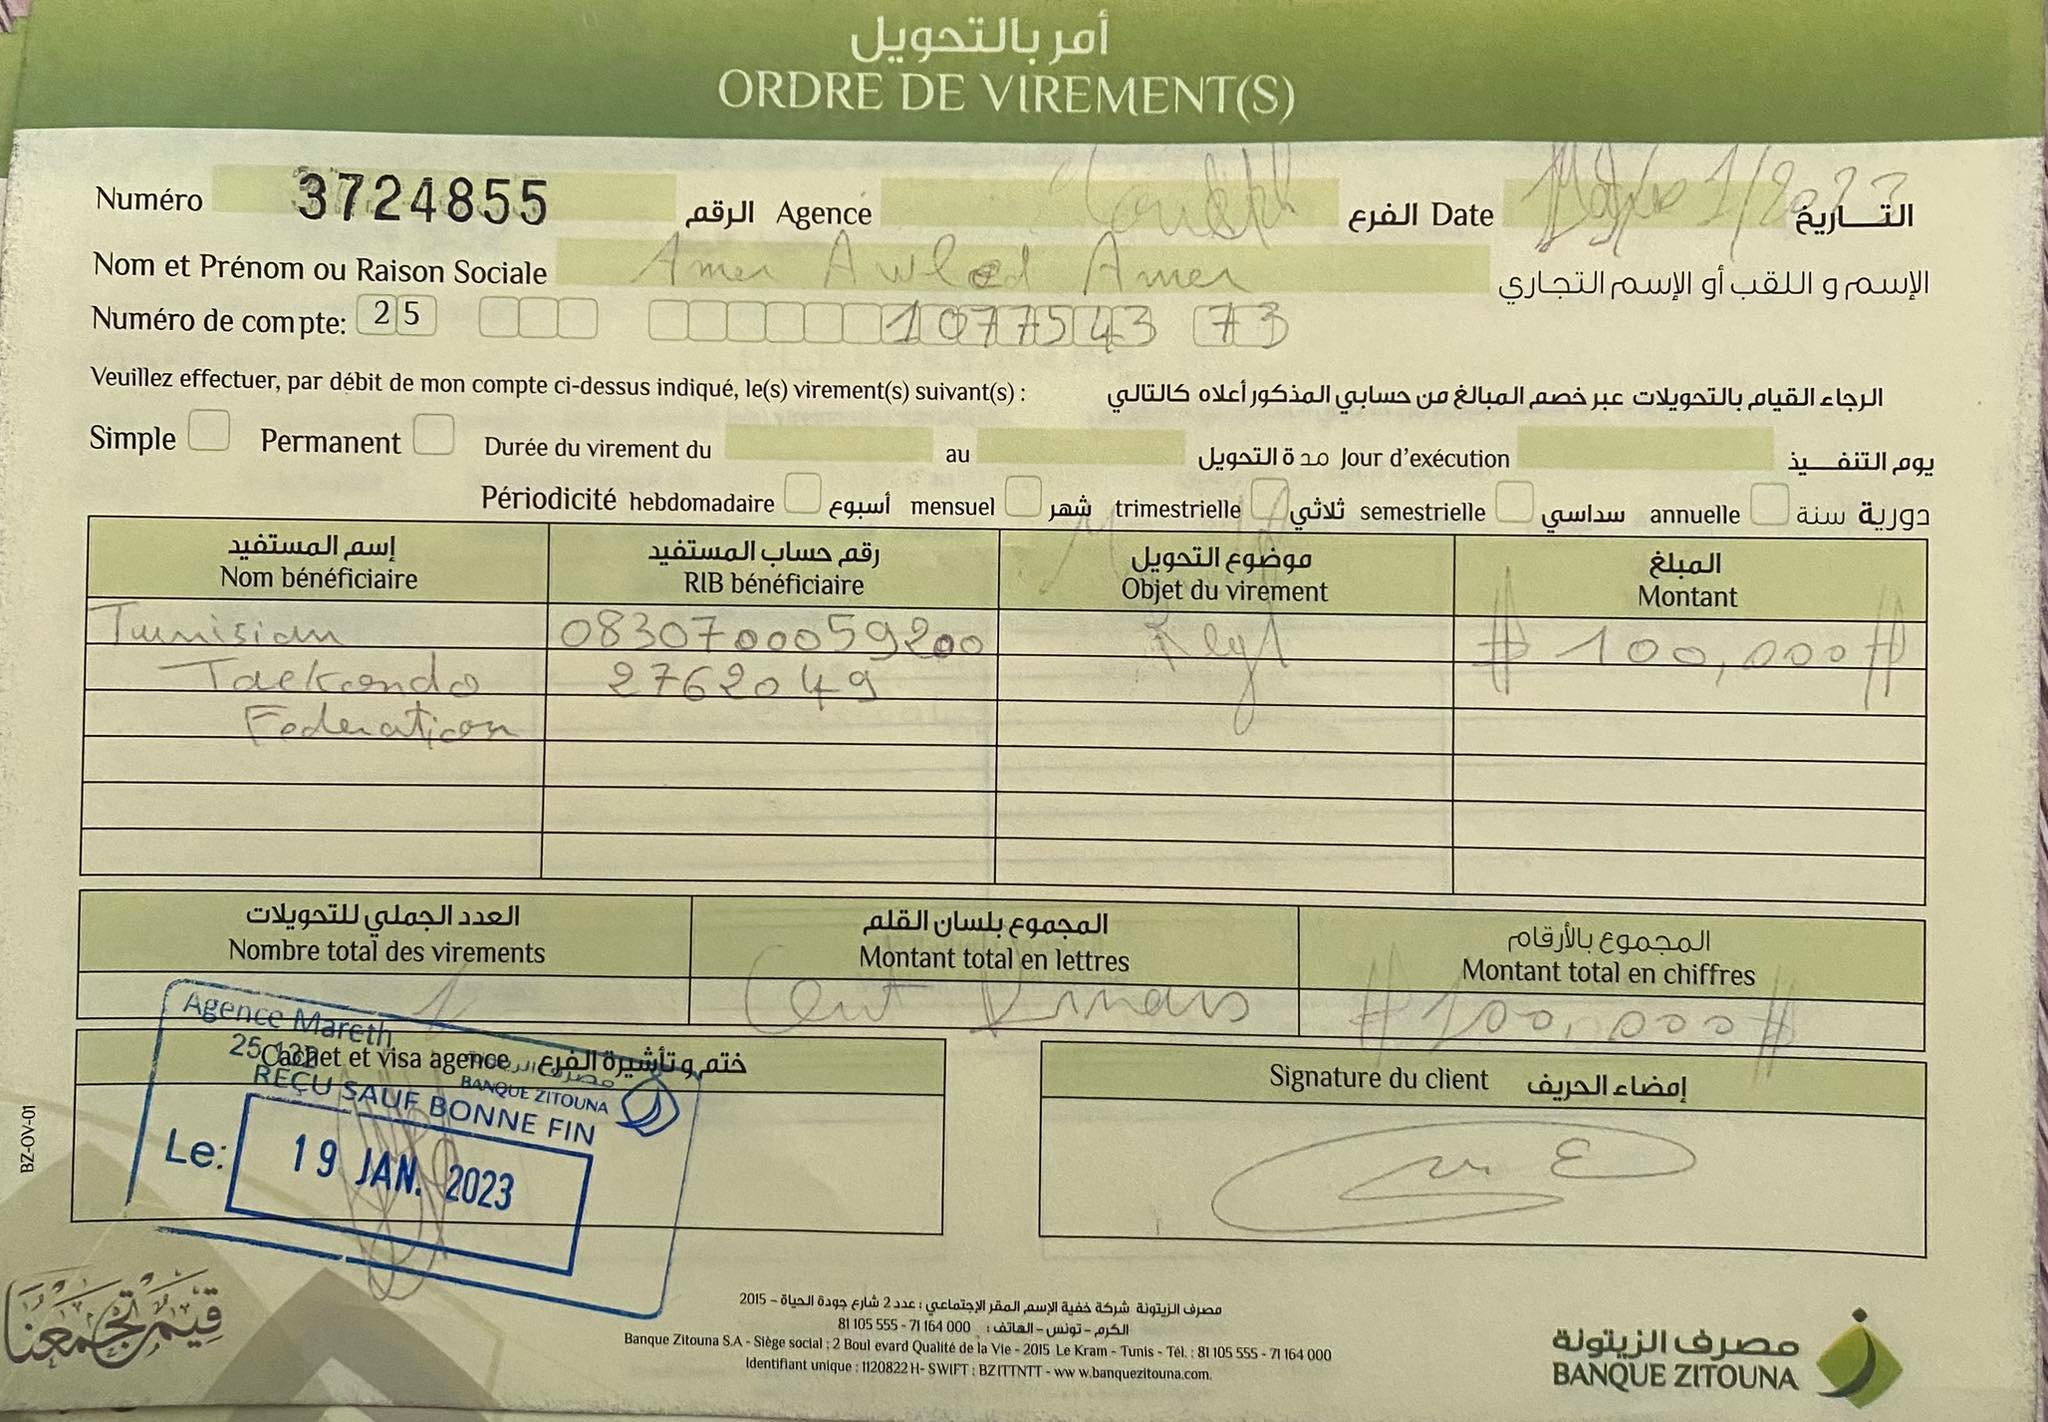 أمر بالتحويل
ORDRE DE VIREMENT(S)
Numéro 3724855 الرقم Agence الفرع Date 1/2023 التـــاريخ
Nom et Prénom ou Raison Sociale Amer Awled Amer الإسم و اللقب أو الإسم التجاري
Numéro de compte: 25 1077543 73
Veuillez effectuer, par débit de mon compte ci-dessus indiqué, le(s) virement(s) suivant(s) : الرجاء القيام بالتحويلات عبر خصم المبالغ من حسابي المذكور أعلاه كالتالي
Simple Permanent Durée du virement du au مدة التحويل Jour d'exécution يوم التنفـــيذ
Périodicité hebdomadaire أسبوع mensuel شهر trimestrielle ثلاثي semestrielle سداسي annuelle سنة دورية
إسم المستفيد رقم حساب المستفيد موضوع التحويل المبلغ
Nom bénéficiaire RIB bénéficiaire Objet du virement Montant
Tunisian 0830700059200 #100,000#
Taekondo 2762049
Federation
العدد الجملي للتحويلات المجموع بلسان القلم المجموع بالأرقام
Nombre total des virements Montant total en lettres Montant total en chiffres
1 Cent Dinars #100,000#
Agence Mareth
Cachet et visa agence ختم وتأشيرة الفرع
Signature du client إمضاء الحريف
BANQUE ZITOUNA
REÇU SAUF BONNE FIN
Le: 19 JAN. 2023
BZ-OV-01
قيم تجمعنا
مصرف الزيتونة شركة خفية الإسم المقر الإجتماعي : عدد 2 شارع جودة الحياة – 2015
الكرم – تونس – الهاتف : 71 164 000 - 81 105 555
Banque Zitouna S.A - Siège social : 2 Boul evard Qualité de la Vie - 2015 Le Kram - Tunis - Tél. : 81 105 555 - 71 164 000
Identifiant unique : 1120822 H- SWIFT : BZITTNTT - ww w.banquezitouna.com.
مصرف الزيتونة
BANQUE ZITOUNA